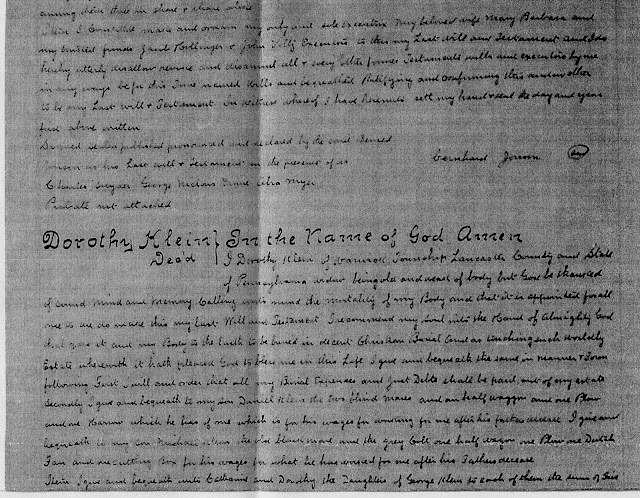 among them share in share & share alike
Item I Constitute make and ordain my only and sole executrix my beloved wife Mary Barbara and
my trusted friends and Executors to this my Last Will and Testament and I do
hereby utterly disallow revoke and disannul all & every other former Testaments wills and executors by me
in any ways before this Time named Wills and bequeathed Ratifying and confirming this and no other
to be my Last will & Testament In witness whereof I have hereunto sett my hand & seal the day and year
first above written
Signed sealed published pronounced and declared by the said
as his Last will & Testament in the presence of us
Charles Snyder George
Probate not attached
Dorothy Klein } In the Name of God Amen
Dec'd I Dorothy Klein of Warwick Township Lancaster County and State
of Pennsylvania widow being old and weak of body but God be thanked
of sound Mind and Memory Calling unto mind the mortality of my Body and that it is appointed for all
once to die do make this my Last Will and Testament I recommend my Soul into the Hand of Almighty God
that gave it and my Body to the Earth to be buried in decent Christian Burial And as touching such worldly
Estate wherewith it hath pleased God to bless me in this Life I give and bequeath the same in manner & Form
following First I will and order that all my Burial Expenses and Just Debts shall be paid out of my estate
Secondly I give and bequeath to my Son Daniel Klein the two blind Mares and one half waggon and one Plow
and one Harrow which he has of me which is for his wages for working for me after his father decease I give and
bequeath to my Son Michael Klein the old black mare and the grey Colt one half wagon one Plow one Dutch
Fan and one cutting Box for his wages for what he has worked for me after his Fathers decease
Item I give and bequeath unto Catharine and Dorothy the Daughters of George Klein to each of them the sum of